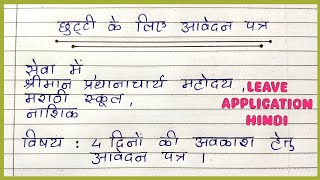 छुट्टी के लिए आवेदन पत्र
सेवा में
श्रीमान प्रधानाचार्य महोदय,
मराठी स्कूल,
नाशिक
LEAVE
APPLICATION
HINDI
विषय : 4 दिनों की अवकाश हेतु
आवेदन पत्र ।